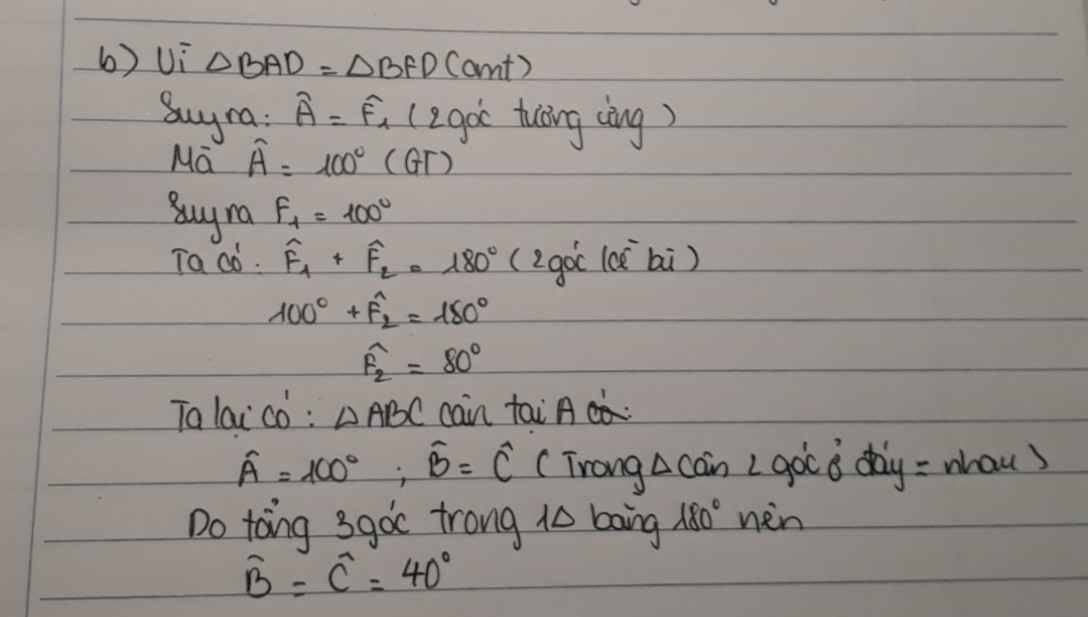 b) Vì ΔBAD = ΔBFD (cmt)
Suy ra: Â = F̂₁ (2 góc tương ứng)
Mà Â = 100° (GT)
Suy ra F₁ = 100°
Ta có: F̂₁ + F̂₂ = 180° (2 góc kề bù)
100° + F̂₂ = 180°
F̂₂ = 80°
Ta lại có: ΔABC cân tại A có:
Â = 100° ; B̂ = Ĉ (Trong Δ cân 2 góc ở đáy = nhau)
Do tổng 3 góc trong 1Δ bằng 180° nên
B̂ = Ĉ = 40°